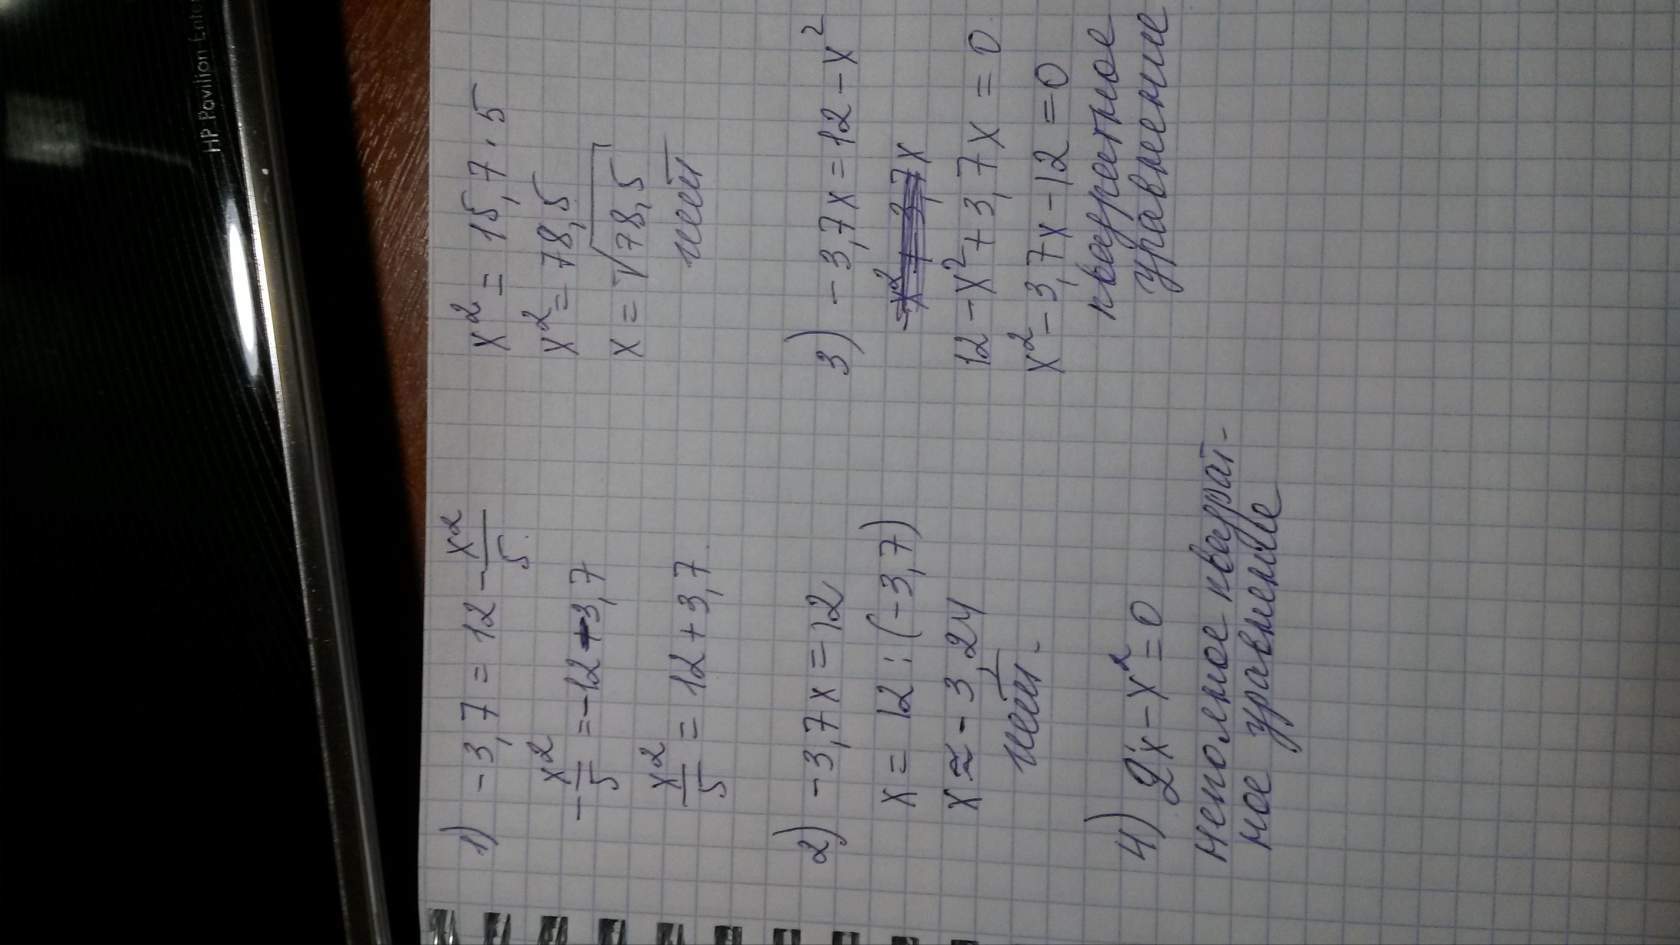 HP Pavilion
1) -3,7 = 12 - x²/5
-x²/5 = -12 - 3,7
x²/5 = 12 + 3,7
x² = 15,7 · 5
x² = 78,5
x = √78,5
нет
2) -3,7x = 12
x = 12 : (-3,7)
x ≈ -3,24
нет.
3) -3,7x = 12 - x²
12 - x² + 3,7x = 0
x² - 3,7x - 12 = 0
квадратное
уравнение
4) 2x - x² = 0
неполное квадрат-
ное уравнение